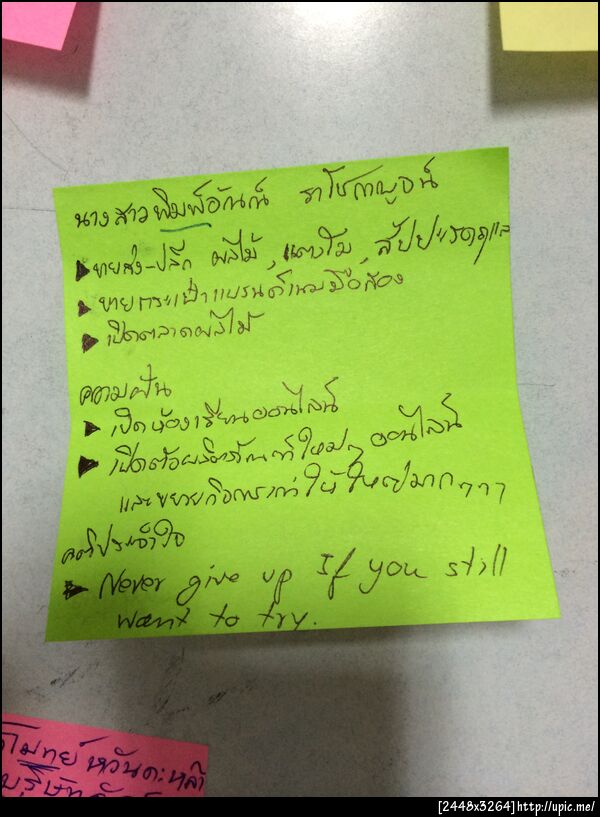 นางสาวพิมพ์อันณ์ ราโชกาญจน์
ขายส่ง-ปลีก ผลไม้, แตงโม, สับปะรดภูแล
ขายกระเป๋าแบรนด์เนมมือสอง
เปิดตลาดผลไม้
ความฝัน
เปิดห้องเรียนออนไลน์
เปิดตัวผลิตภัณฑ์ใหม่ๆ ออนไลน์
และขยายกิจการค้าให้ใหญ่มากๆๆๆ
คติประจำใจ
Never give up If you still
want to try.
หวันตะหลี
[2448x3264]http://upic.me/